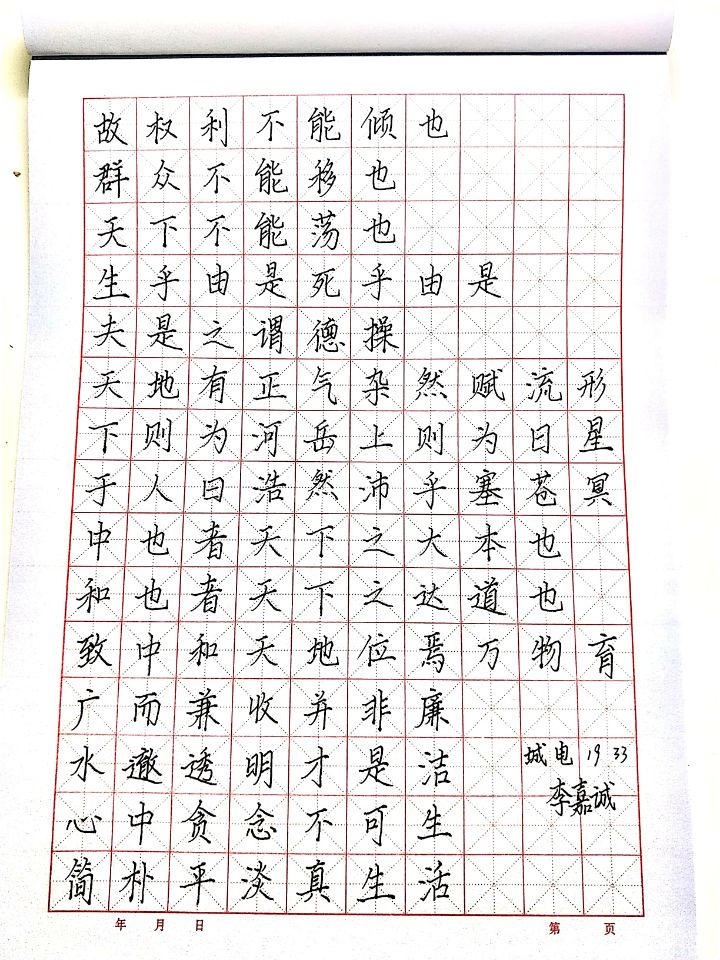 故权利不能倾也
群众不能移也
天下不能荡也
生乎由是死乎由是
夫是之谓德操
天地有正气杂然赋流形
下则为河岳上则为日星
于人曰浩然沛乎塞苍冥
中也者天下之大本也
和也者天下之达道也
致中和天地位焉万物育
广而兼收并非廉
水澈透明才是洁
城电1933
李嘉诚
心中贪念不可生
简朴平淡真生活
年 月 日
第 页